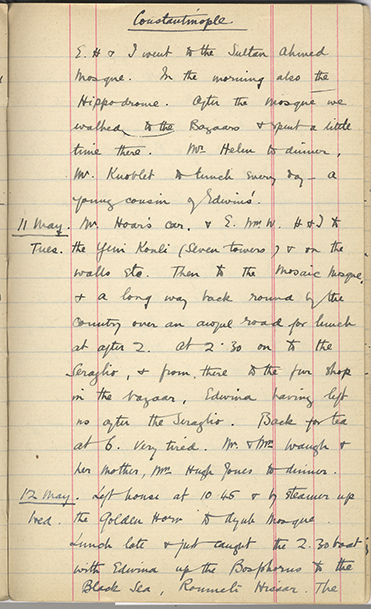 Constantinople.
E. H & I went to the Sultan Ahmed
Mosque. In the morning also the
Hippodrome. After the Mosque we
walked to the Bazaars & spent a little
time there. Mr Helm to dinner,
Mr. Knoblet to lunch every day – a
young cousin of Edwins'.
11 May. Mr. Hoar's car. & E. Mr. W. H & I to
Tues. the Yeni Konli (Seven towers) & on the
walls etc. Then to the Mosaic Mosque,
& a long way back round by the
country over an awful road for lunch
at after 2. At 2.30 on to the
Seraglio, & from there to the fur shop
in the bazaar, Edwina having left
us after the Seraglio. Back for tea
at 6. Very tired. Mr. & Mrs Waugh &
her mother, Mrs Hugh Jones to dinner.
12 May. Left house at 10.45 & by steamer up
Wed. the Golden Horn to Ayub Mosque.
Lunch late & just caught the 2.30 boat
with Edwina up the Bosphorus to the
Black Sea, Roumeli Hissar. The